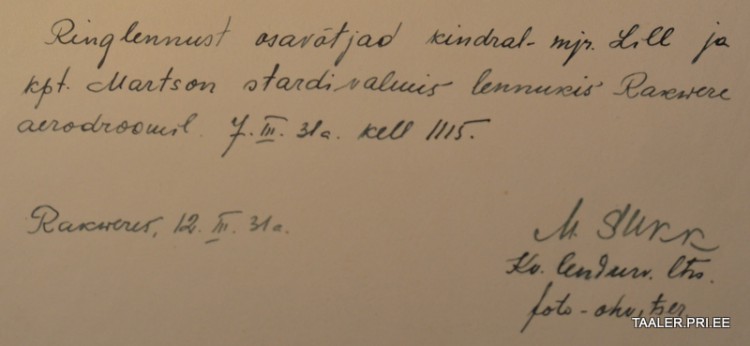 Ringlennust osavõtjad kindral-mjr. Lill ja
kpt. Martson stardivalmis lennukis Rakwere
aerodroomil. 7. III. 31a. kell 1115.
Rakweres, 12. III. 31a.
M. Sukk
Kv. lenduv. ltn.
foto-ohvitser
TAALER.PRI.EE